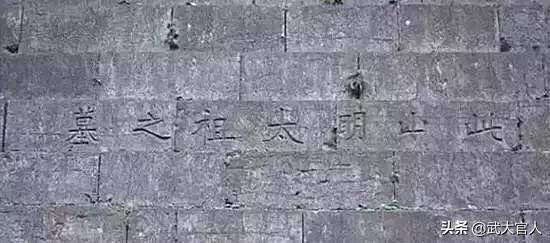 此山明太祖之墓
头条 @武大官人